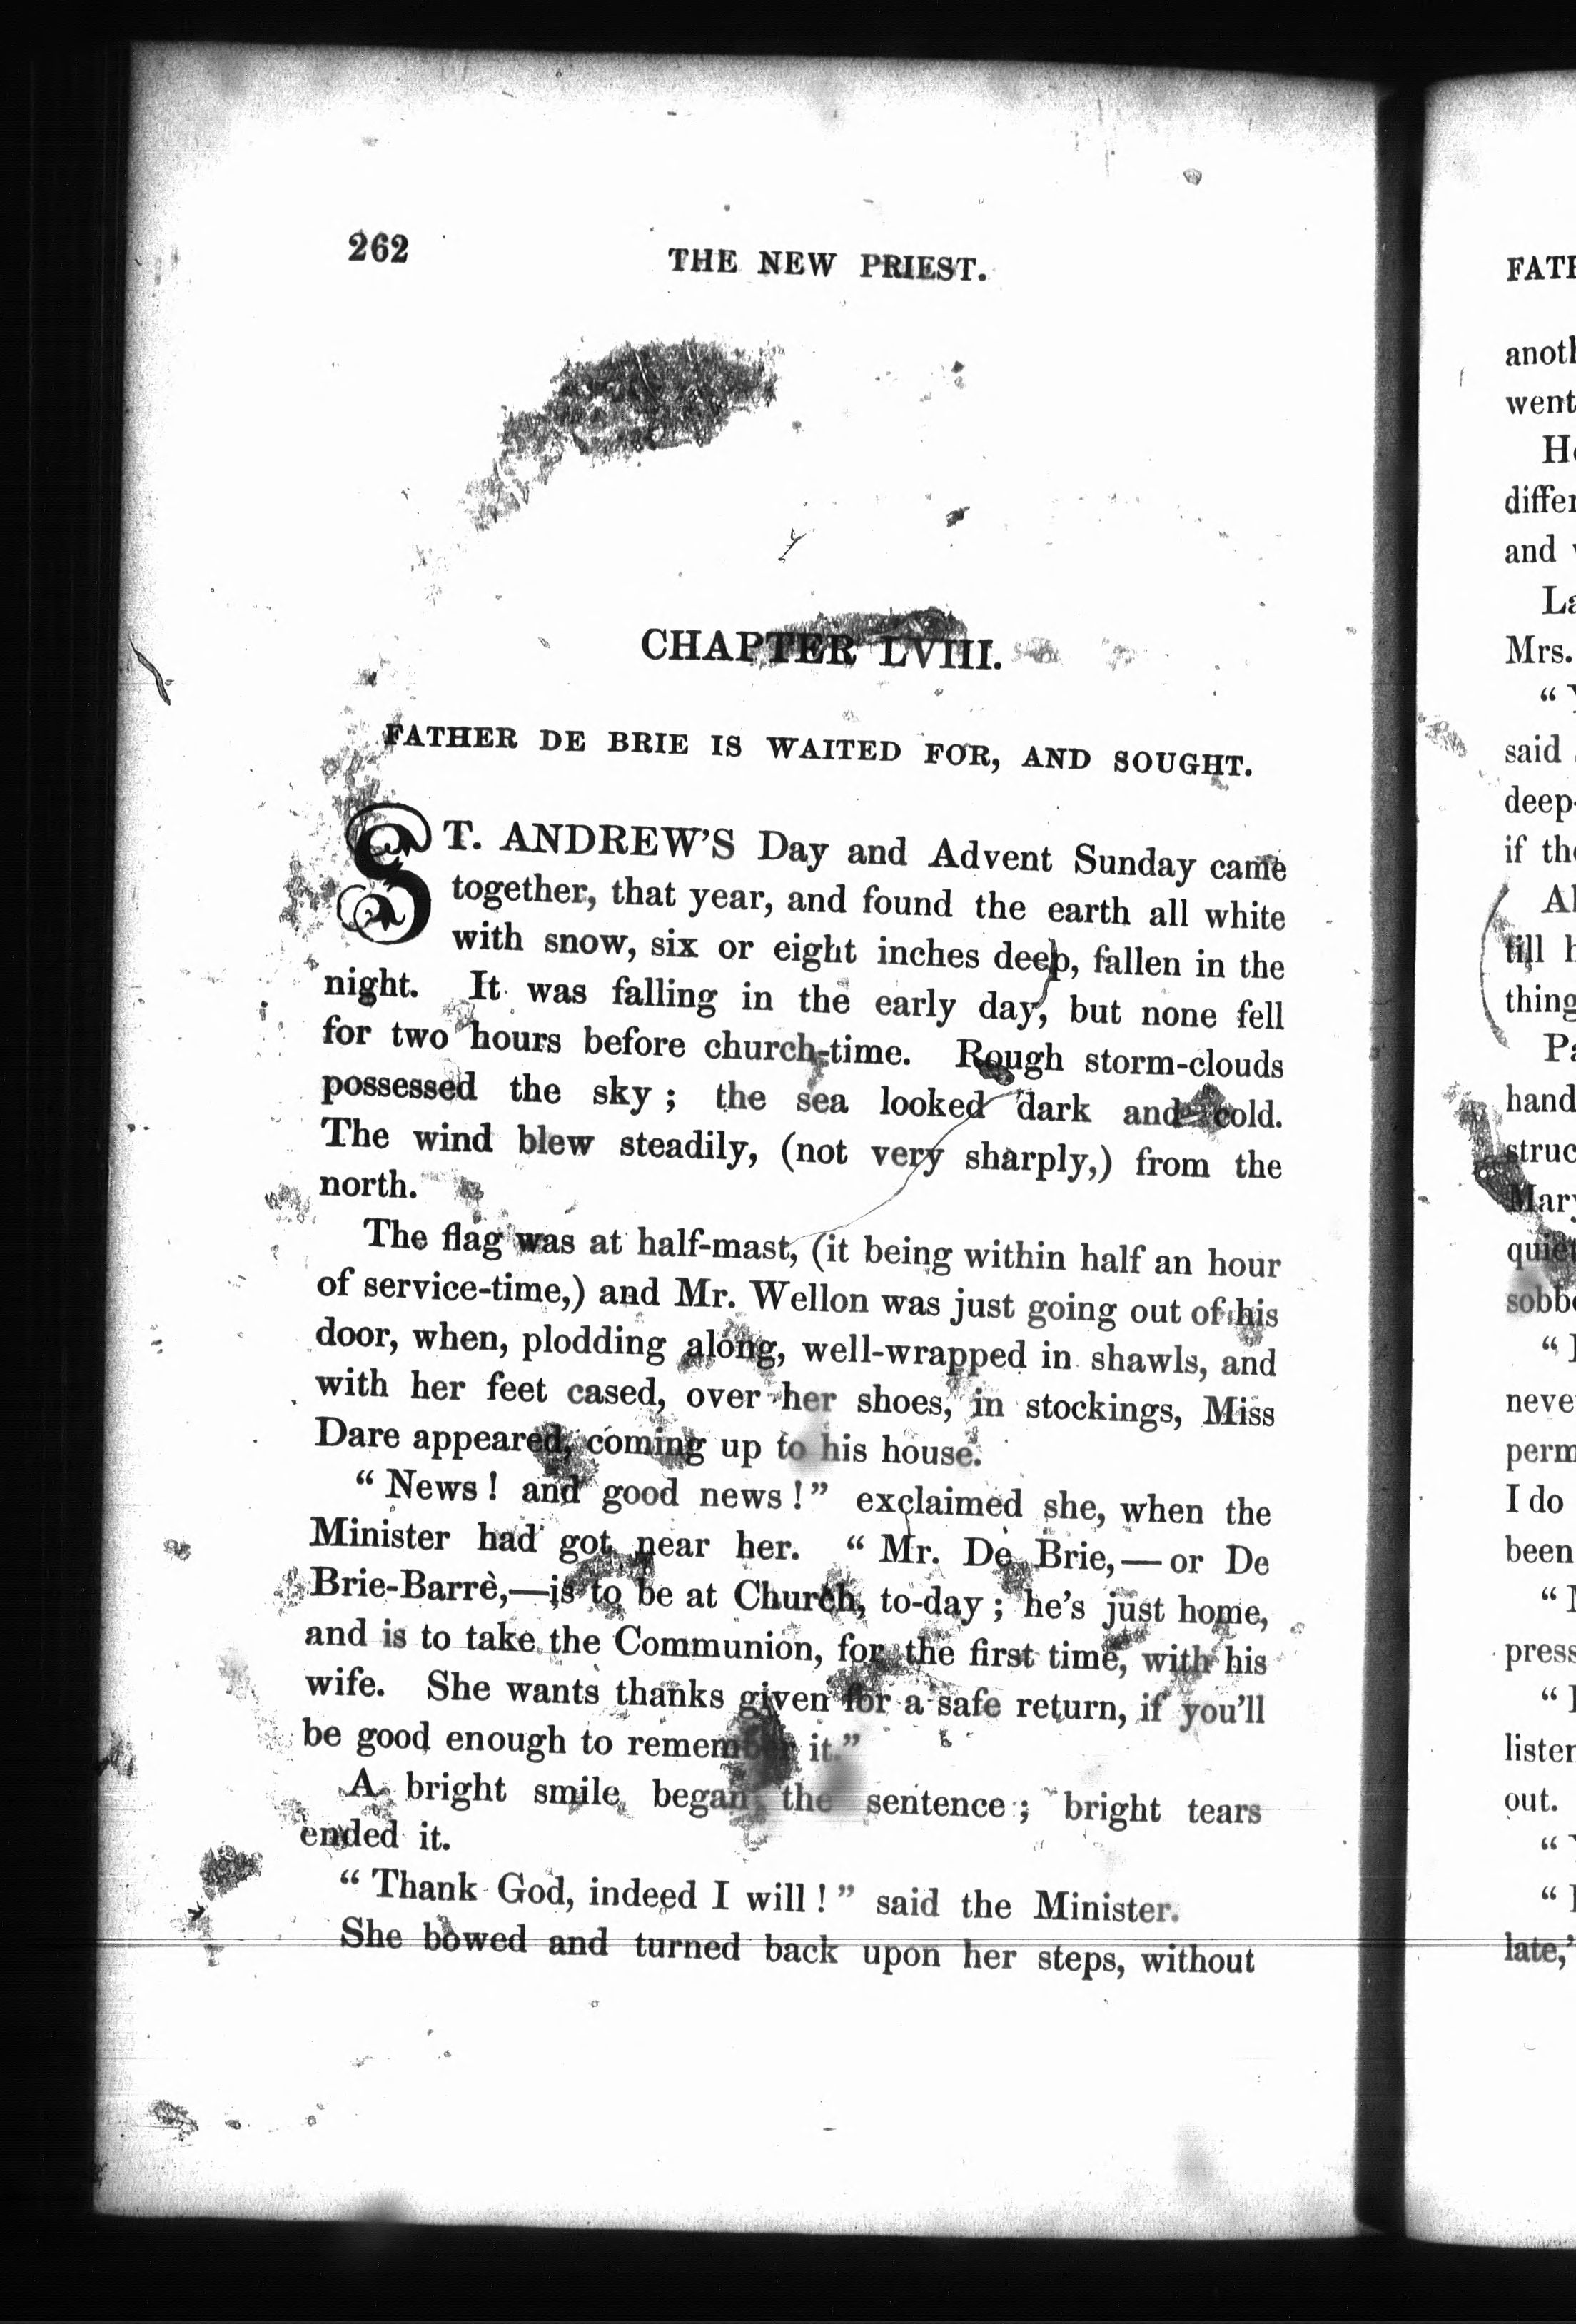 262
THE NEW PRIEST.
CHAPTER LVIII.
FATHER DE BRIE IS WAITED FOR, AND SOUGHT.
ST. ANDREW'S Day and Advent Sunday came
together, that year, and found the earth all white
with snow, six or eight inches deep, fallen in the
night. It was falling in the early day, but none fell
for two hours before church-time. Rough storm-clouds
possessed the sky; the sea looked dark and cold.
The wind blew steadily, (not very sharply,) from the
north.
The flag was at half-mast, (it being within half an hour
of service-time,) and Mr. Wellon was just going out of his
door, when, plodding along, well-wrapped in shawls, and
with her feet cased, over her shoes, in stockings, Miss
Dare appeared, coming up to his house.
"News! and good news!" exclaimed she, when the
Minister had got near her. "Mr. De Brie,—or De
Brie-Barrè,—is to be at Church, to-day; he's just home,
and is to take the Communion, for the first time, with his
wife. She wants thanks given for a safe return, if you'll
be good enough to remember it."
A bright smile began the sentence; bright tears
ended it.
"Thank God, indeed I will!" said the Minister.
She bowed and turned back upon her steps, without
went
and
Mrs.
said
deep-
if
till
thing
hand
I do
been
out.
late,"